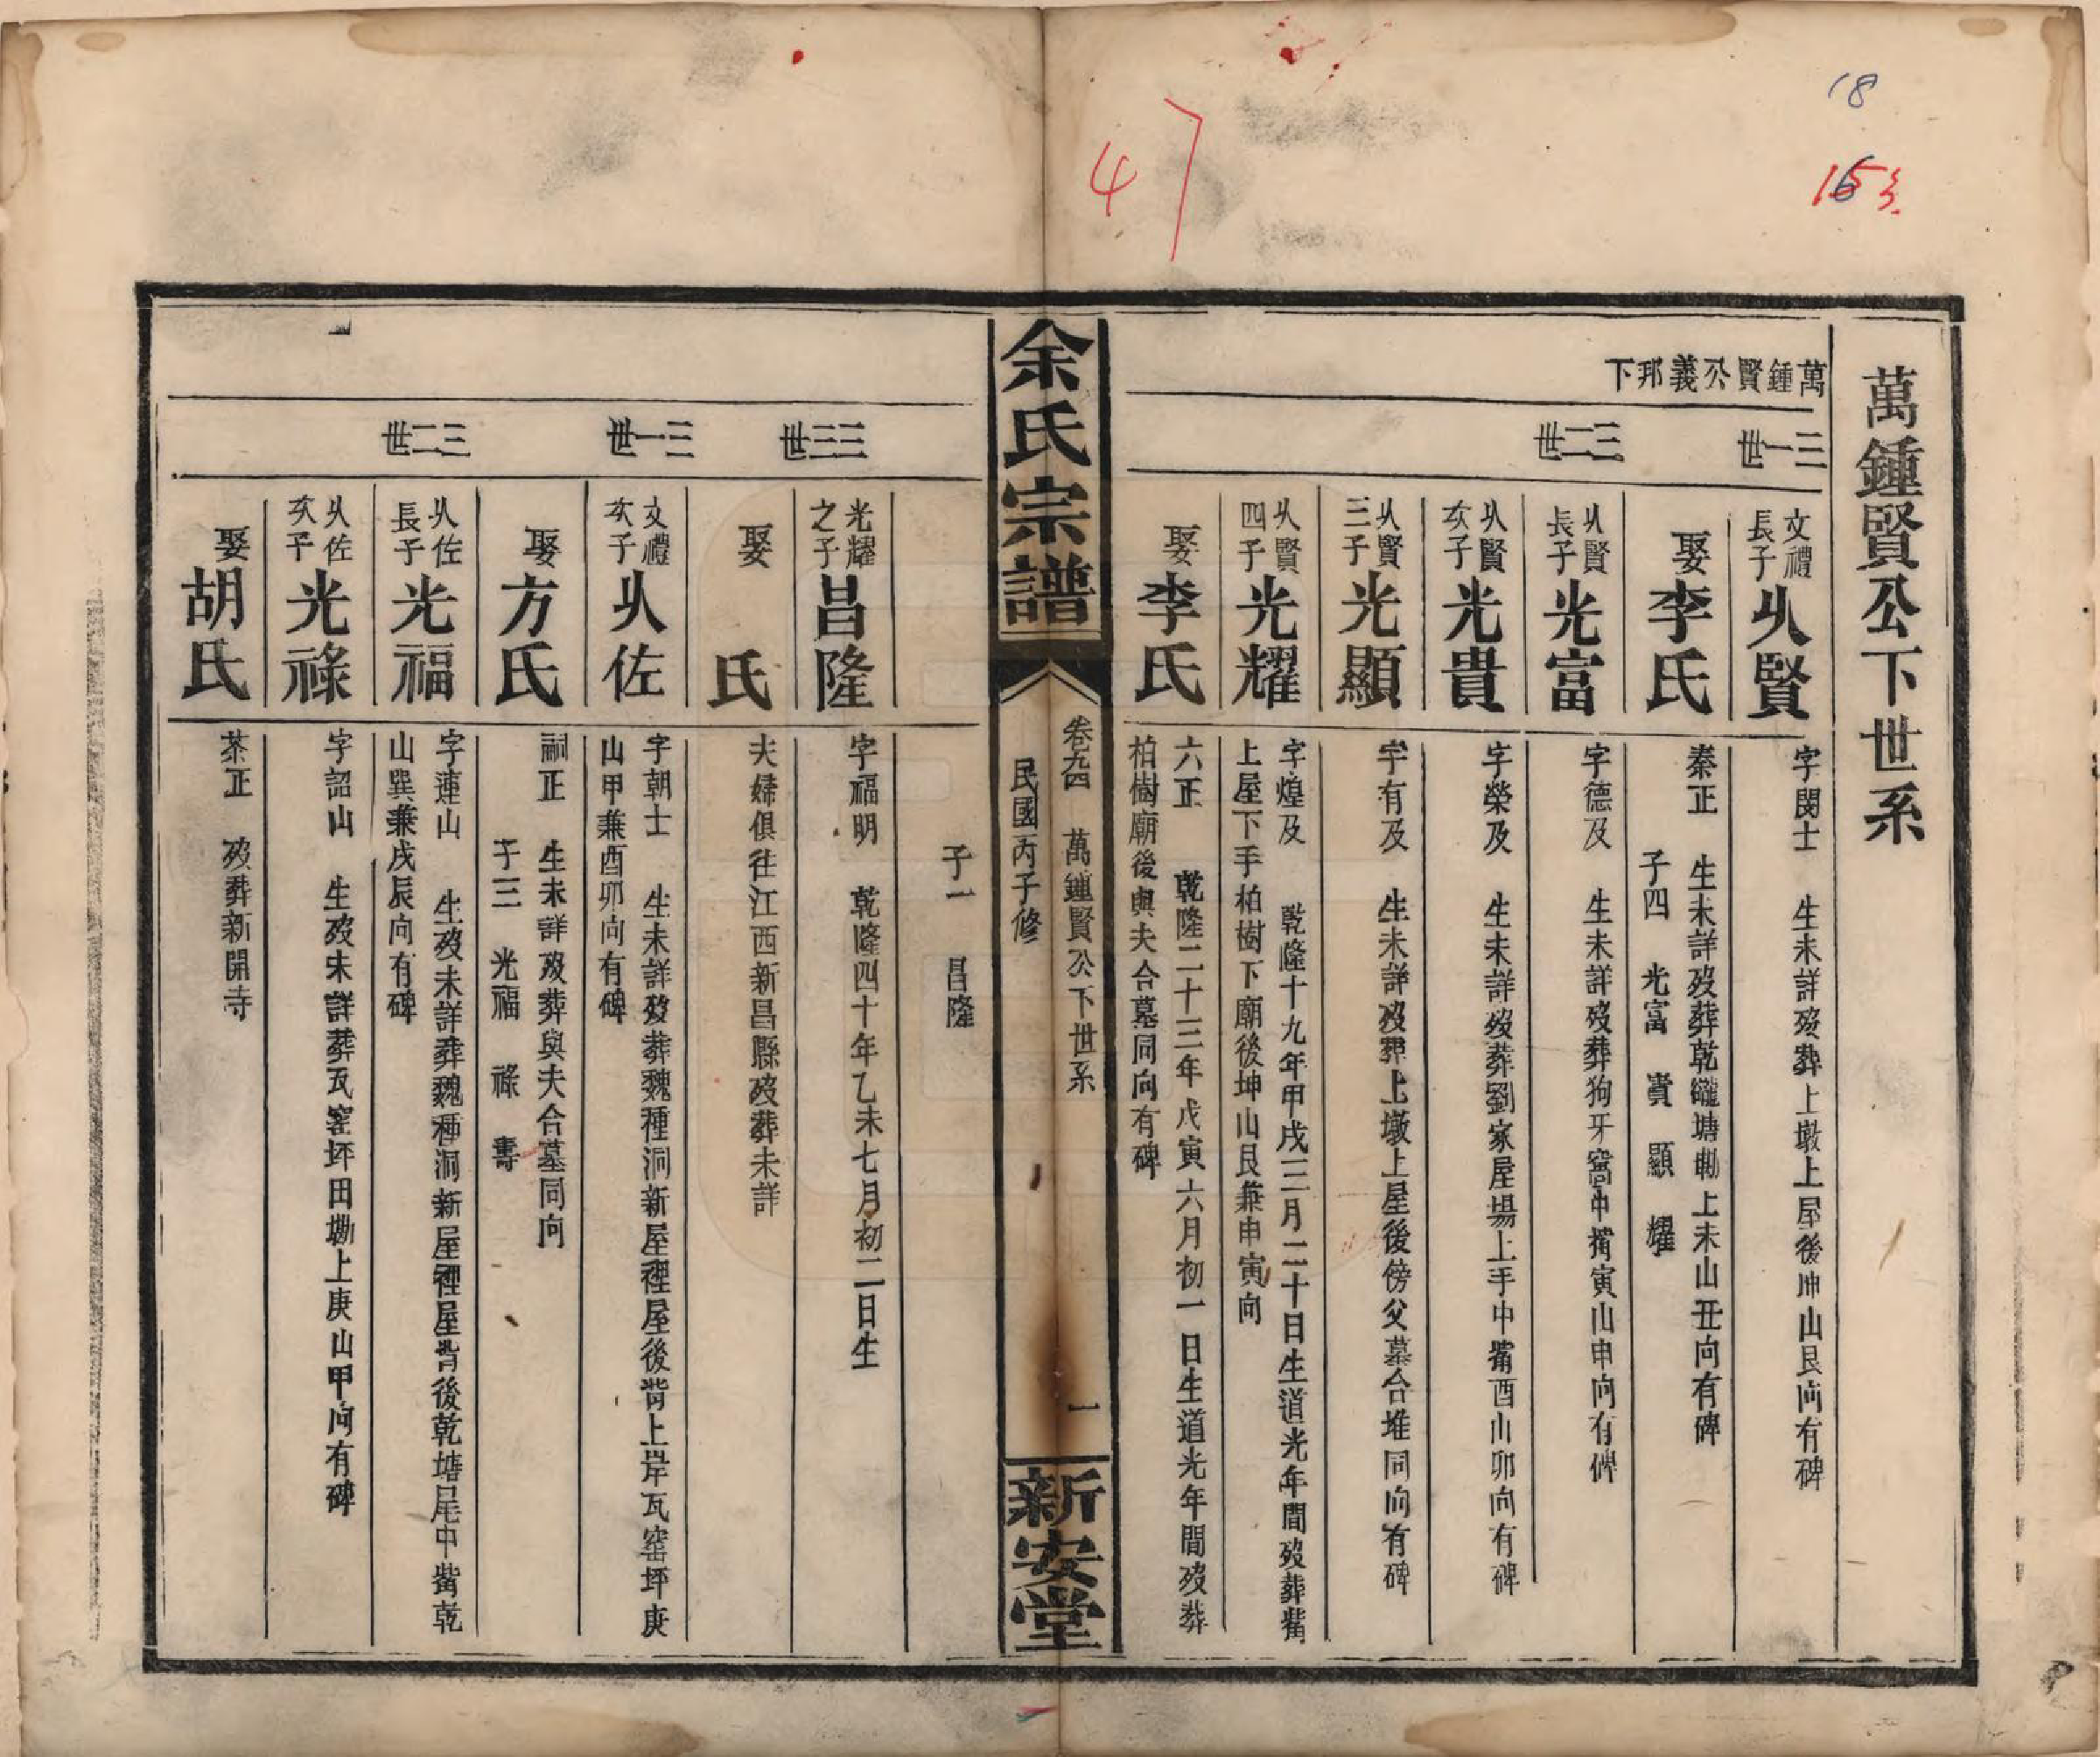 18
163
4
萬鍾賢公下世系
萬鍾賢公義邦下
三一世
文禮長子 乆賢
字閔士 生未詳歿葬上墩上屋後坤山艮向有碑
娶李氏
秦正 生未詳歿葬乾礲塘墈上未山丑向有碑
子四 光富 貴 顯 耀
三二世
乆賢長子 光富
字德及 生未詳歿葬狗牙窩中嘴寅山申向有碑
乆賢次子 光貴
字榮及 生未詳歿葬劉家屋場上手中嘴酉山卯向有碑
乆賢三子 光顯
字有及 生未詳歿葬上墩上屋後傍父墓合堆同向有碑
乆賢四子 光耀
字煌及 乾隆十九年甲戌三月二十日生道光年間歿葬嘴
上屋下手柏樹下廟後坤山艮兼申寅向
娶李氏
六正 乾隆二十三年戊寅六月初一日生道光年間歿葬
柏樹廟後與夫合墓同向有碑
余氏宗譜
卷之四 萬鍾賢公下世系 一
民國丙子修
新安堂
子一 昌隆
三三世
光耀之子 昌隆
字福明 乾隆四十年乙未七月初二日生
娶 氏
夫婦俱往江西新昌縣歿葬未詳
三一世
文禮次子 乆佐
字朝士 生未詳歿葬魏種洞新屋裡屋後背上岸瓦窑坪庚
山甲兼酉卯向有碑
娶方氏
嗣正 生未詳歿葬與夫合墓同向
子三 光福 祿 壽
三二世
乆佐長子 光福
字連山 生歿未詳葬魏種洞新屋裡屋背後乾塘尾中嘴乾
山巽兼戌辰向有碑
乆佐次子 光祿
字韶山 生歿未詳葬瓦窑坪田墈上庚山甲向有碑
娶胡氏
茶正 歿葬新開寺